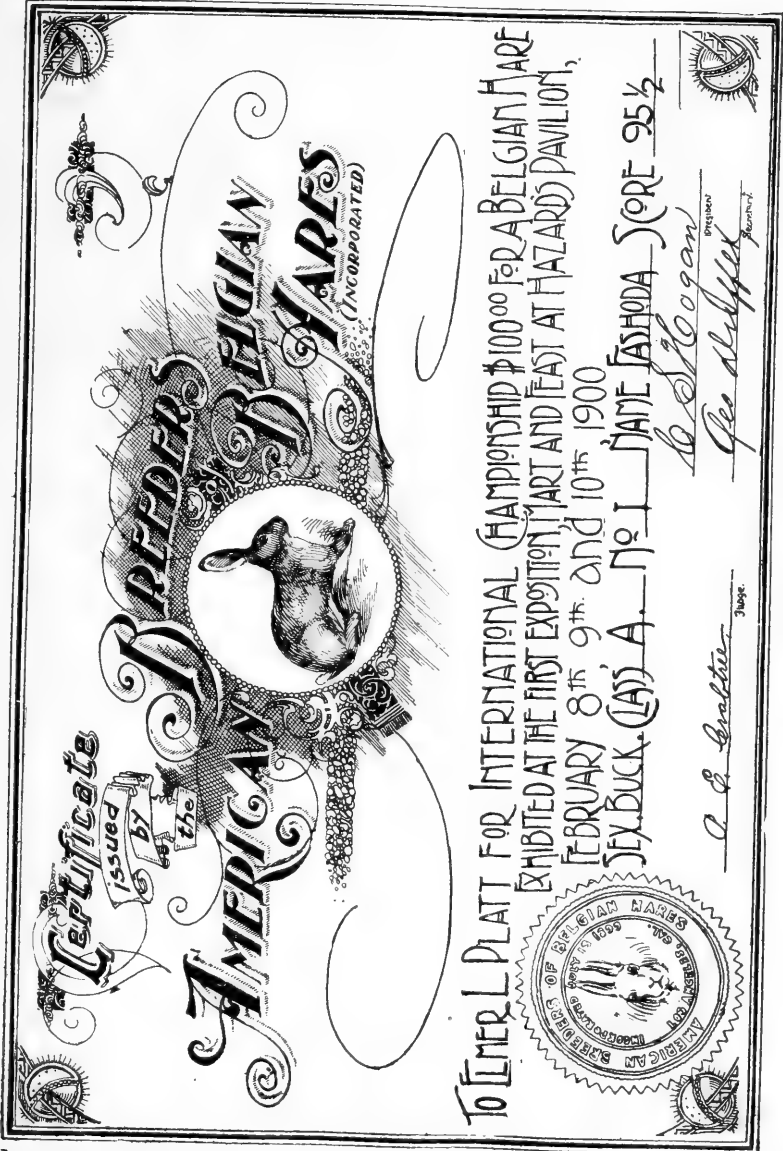 Certificate
issued
by
the
AMERICAN BREEDERS
BELGIAN
HARES
(INCORPORATED)
TO ELMER L PLATT FOR INTERNATIONAL CHAMPIONSHIP $100⁰⁰ FOR A BELGIAN HARE
EXHIBITED AT THE FIRST EXPOSITION, MART AND FEAST AT HAZARD'S PAVILION,
FEBRUARY 8th 9th. and 10th 1900
SEX, BUCK, CLASS, A. No 1 NAME FASHODA SCORE 95½
President
Secretary.
O. E. Crabtree
Judge.
AMERICAN BREEDERS OF BELGIAN HARES
INCORPORATED JULY 15 1899
LOS ANGELES, CAL.